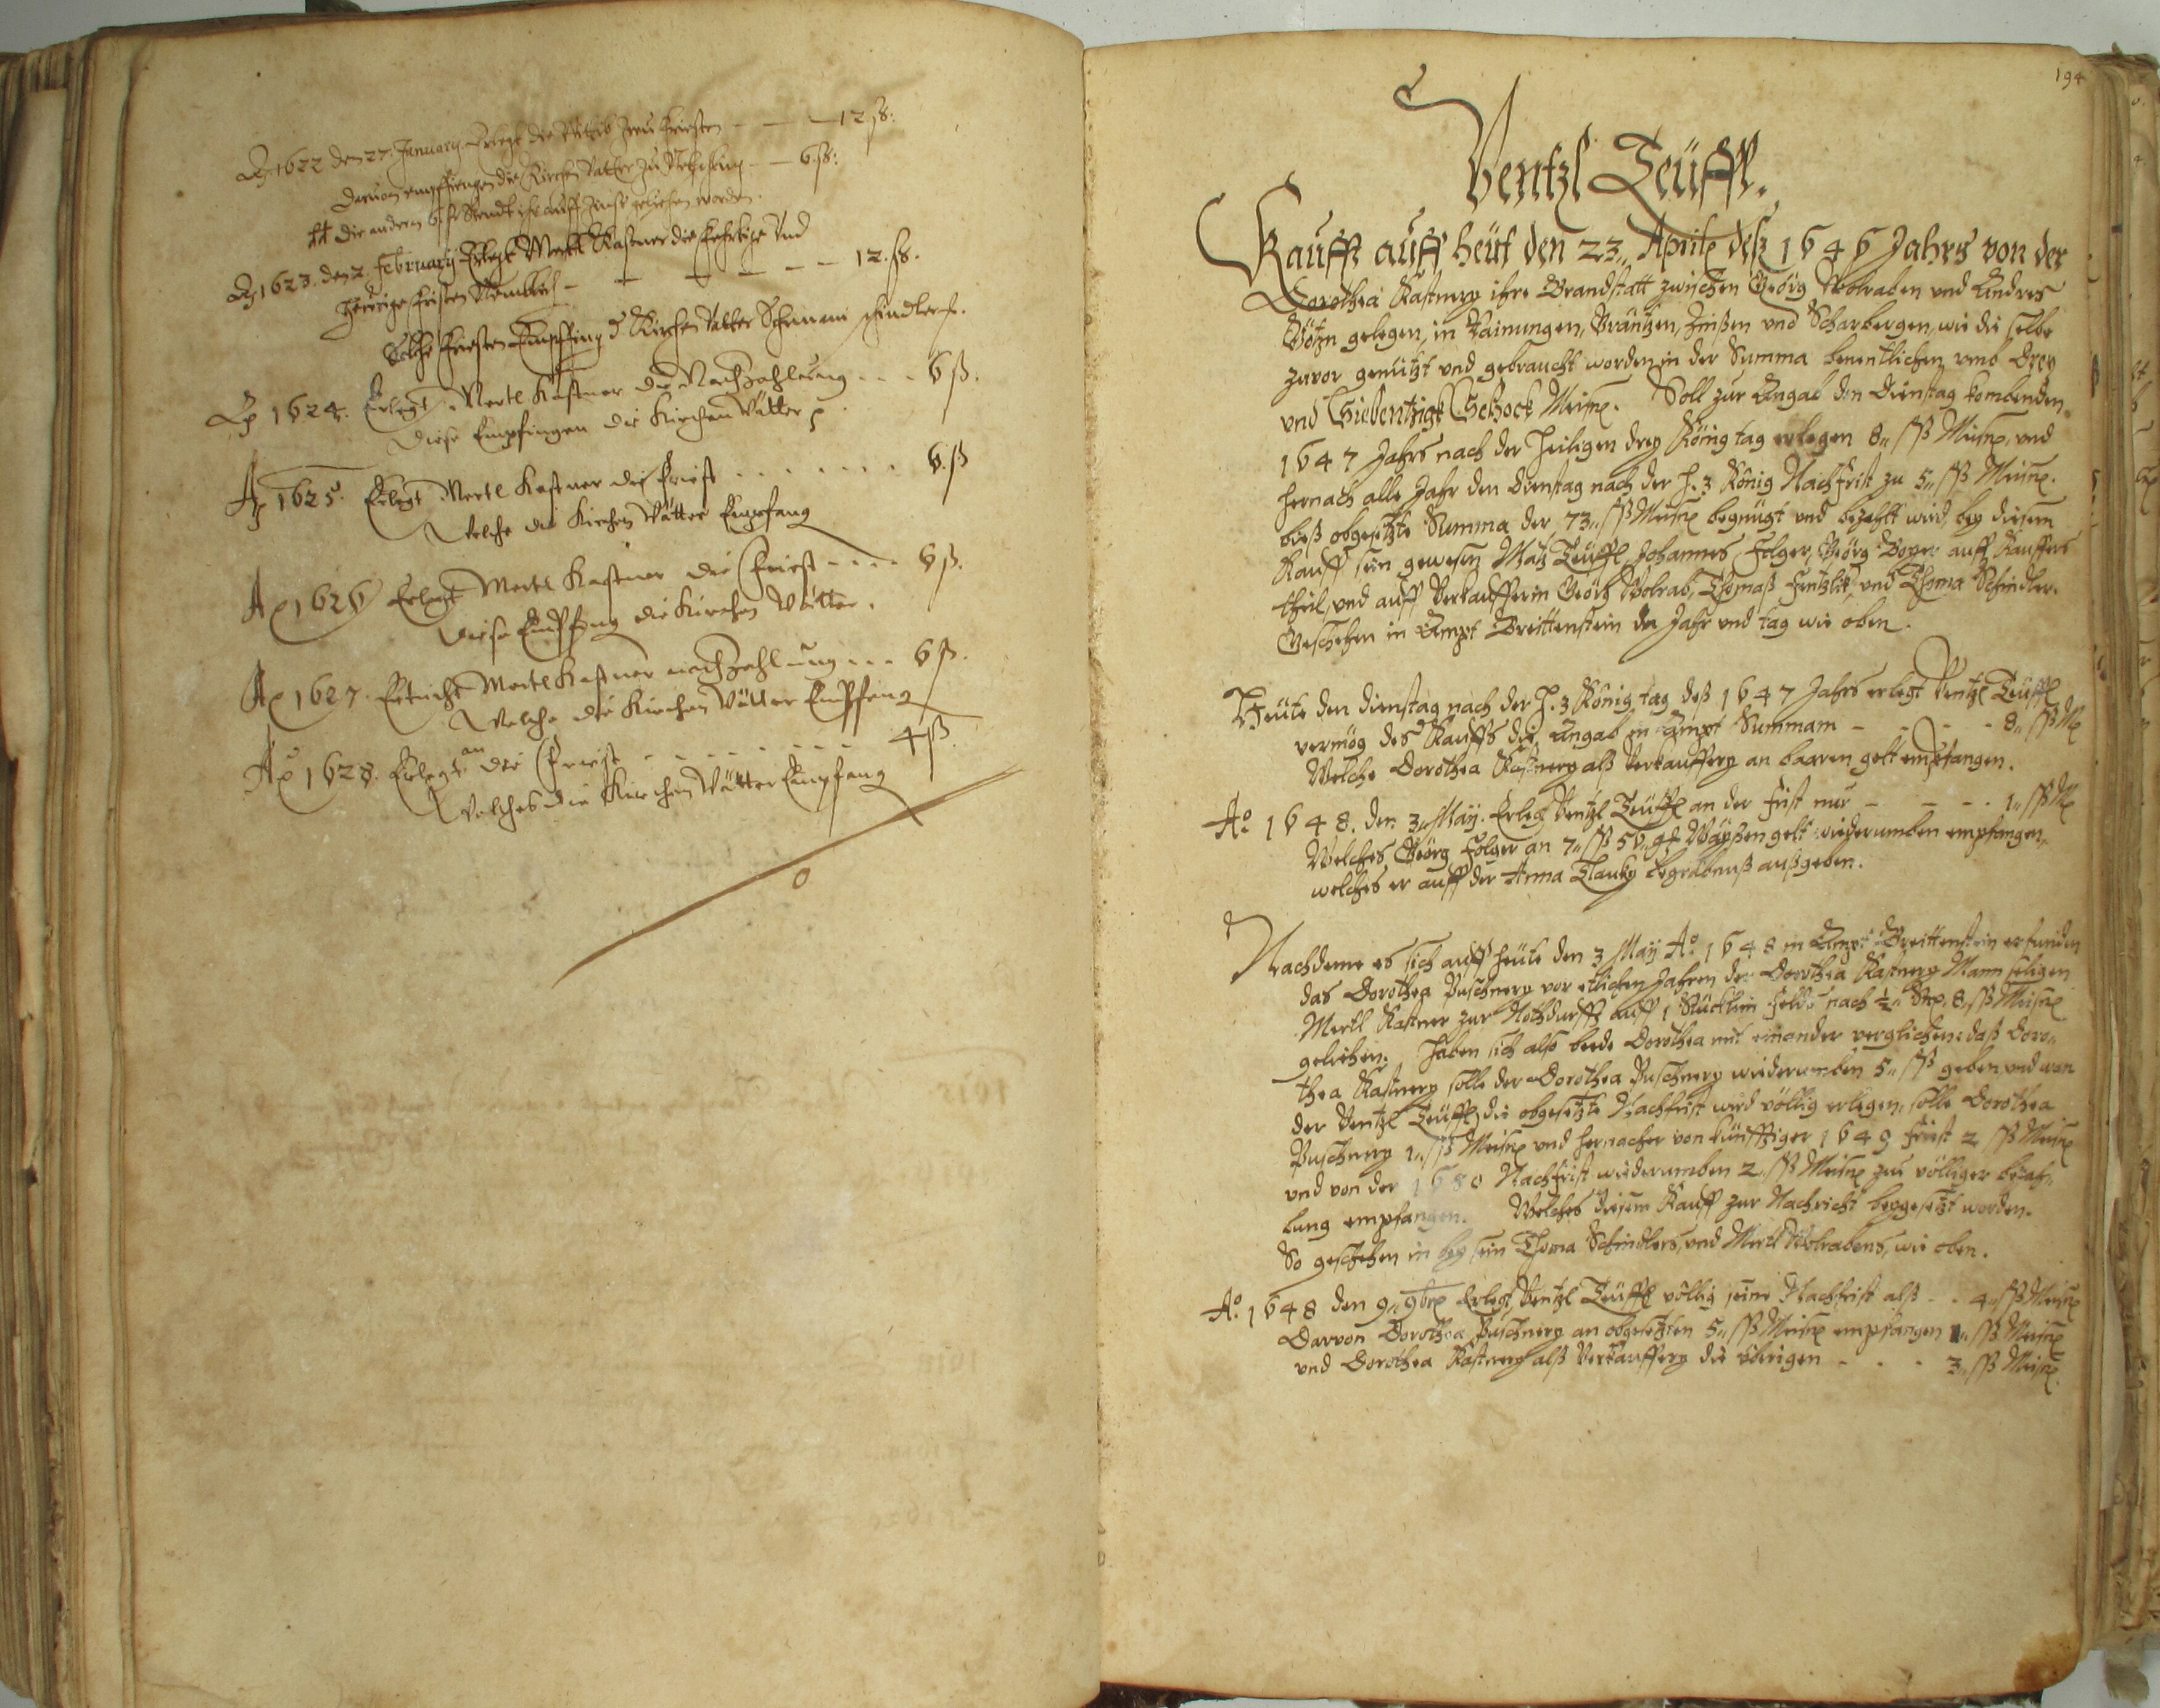 Ao 1622 den 27. January. Erlegt die Frist
daruon empfiengen die Kirchen Vätter zu - - 6 ss:
die andern 6 ss auff Zinß geliehen worden.
Ao 1623. den 2. february Erlegt Mertl Kastner die und
heurige fristen Nemblich - - - - - 12. ss.
Solche fristen Empfing d Kirchen Vatter Schindler.
Ao 1624. Erlegt Mertl Kastner die Nachzahlung . . . 6 ß.
Diese Empfingen die Kirchen Vätter
Ao 1625. Erlegt Mertl Kastner die Friest . . . . . . . 6. ß
Welche die Kirchen Vätter Empfang
Ao 1626 Erlegt Mertl Kastner die Friest - - - - 6 ß.
Diese Empfang die Kirchen Vätter.
Ao 1627. Mertl Kastner nachzahlung . . . 6 ß.
Welche die Kirchen Vätter Empfang
Ao 1628. Erlegt an der Friest . . . . . . . . 4 ß.
Welches die Kirchen Vätter Empfang
0
194
Ventzl Teüffl.
Kaufft auff heüt den 23„ Aprile deß 1646 Jahrs von der
Dorothea Kastnery ihre Brandstatt zwischen Geörg Wolraben und Andres
gelegen, in Rainungen, Gräntzen, Zinßen und Scharbergen, wie die selbe
zuvor genützt und gebraucht worden in der Summa benentlichen umb Drey
und Siebentzigk Schock Meisn. Soll zur Angab den Dienstag kombenden
1647 Jahrs nach der Heiligen drey König tag erlegen 8„ ßß Meisn, und
hernach alle Jahr den Dienstag nach der H. 3 König Nachfrist zu 5„ ßß Meisn.
bieß obgesetzte Summa der 73„ ßß Meisn begnügt und bezahlt wird, bey diesem
Kauff sein gewesen Matz Teüffl Johannes Folger, Geörg auff Kauffers
theil, und auff Verkaufferin Geörg Wolrab, Thomaß und Thoma Schindler.
Geschehen in Ampt Breittenstein den Jahr und tag wie oben.
Heüte den dienstag nach der H. 3 König tag deß 1647 Jahrs erlegt Ventzl Teüffl
vermög des Kauffs die Angab in Ampt Summam - - - - 8„ ßß M
Welche Dorothea Kastnery alß Verkauffery an baaren gelt empfangen.
Ao. 1648. den 3„ May. Erlegt Ventzl Teüffl an der frist nur - - - - 1„ ßß M
Welches Geörg Folger an 7„ ßß 50„ gr Wayßen gelt wiederumben empfangen,
welches er auff der Anna begräbnuß außgeben.
Nachdeme es sich auff heüte den 3 May Ao. 1648 in Ampt Breittenstein erfunden
das Dorothea Puschnery vor etlichen Jahren der Dorothea Kastnery Mann seligen
Mertl Kastner zur Nothdurfft auff 1 Stücklein Feldt nach ½„ Str, 8„ ßß Meisn
geliehen. Haben sich also beede Dorothea mit einander verglichen: daß Doro„
thea Kastnery solle der Dorothea Puschnery wiederumben 5„ ßß geben und wan
der Ventzl Teüffl die obgesetzte Nachfrist wird völlig erlegen, solle Dorothea
Puschnery 1„ ßß Meisn und hernacher von künfftiger 1649 frist 2 ßß Meisn
und von der 1650 Nachfrist wiederumben 2„ ßß Meisn zur völliger bezah„
lung empfangen. Welches diesem Kauff zur Nachricht beygesetzt worden.
So geschehen in bey sein Thoma Schindlers, und Mertl Wolrabens, wie oben.
Ao. 1648 den 9„ 9bre Erlegt Ventzl Teüffl völlig seine Nachfrist alß - - 4„ ßß Meisn
Darvon Dorothea Puschnery an obgesetzten 5„ ßß Meisn empfangen 1„ ßß Meisn
und Dorothea Kastnery alß Verkauffery die übrigen - - - 3„ ßß Meisn.